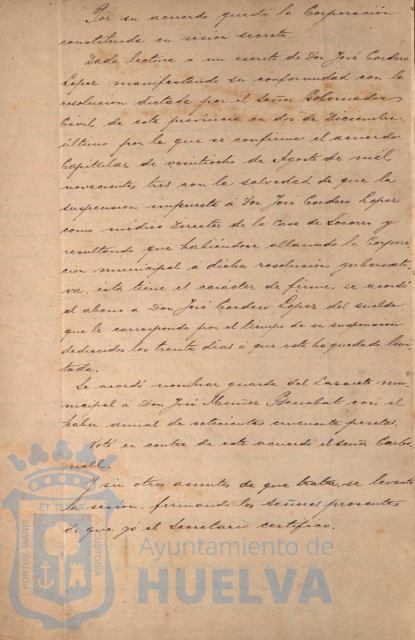 Por su acuerdo quedó la Corporación
constituida en sesión secreta.
Dada lectura a un escrito de Don José Cordero
López manifestando su conformidad con la
resolución dictada por el Señor Gobernador
Civil de esta provincia en dos de Diciembre
último por la que se confirma el acuerdo
Capitular de veintiocho de Agosto de mil
novecientos tres con la salvedad de que la
suspensión impuesta á Don José Cordero López
como médico Director de la Casa de Socorro y
resultando que habiéndose allanado la Corpora-
ción municipal á dicha resolución gubernati-
va, esta tiene el carácter de firme, se acordó
el abono a Don José Cordero López del sueldo
que le corresponde por el tiempo de su suspensión
deducidos los treinta días á que esta ha quedado limi-
tada.
Se acordó nombrar guarda del Lazareto mu-
nicipal á Don José Muñoz con el
haber anual de setecientas cincuenta pesetas.
Votó en contra de este acuerdo el señor Carbo-
nell.
Y sin otros asuntos de que tratar, se levantó
la sesión, firmando los Señores presentes
de que yó el Secretario certifico.
PORTUS MARIS ET TERRAE CUSTODIA
Ayuntamiento de
HUELVA